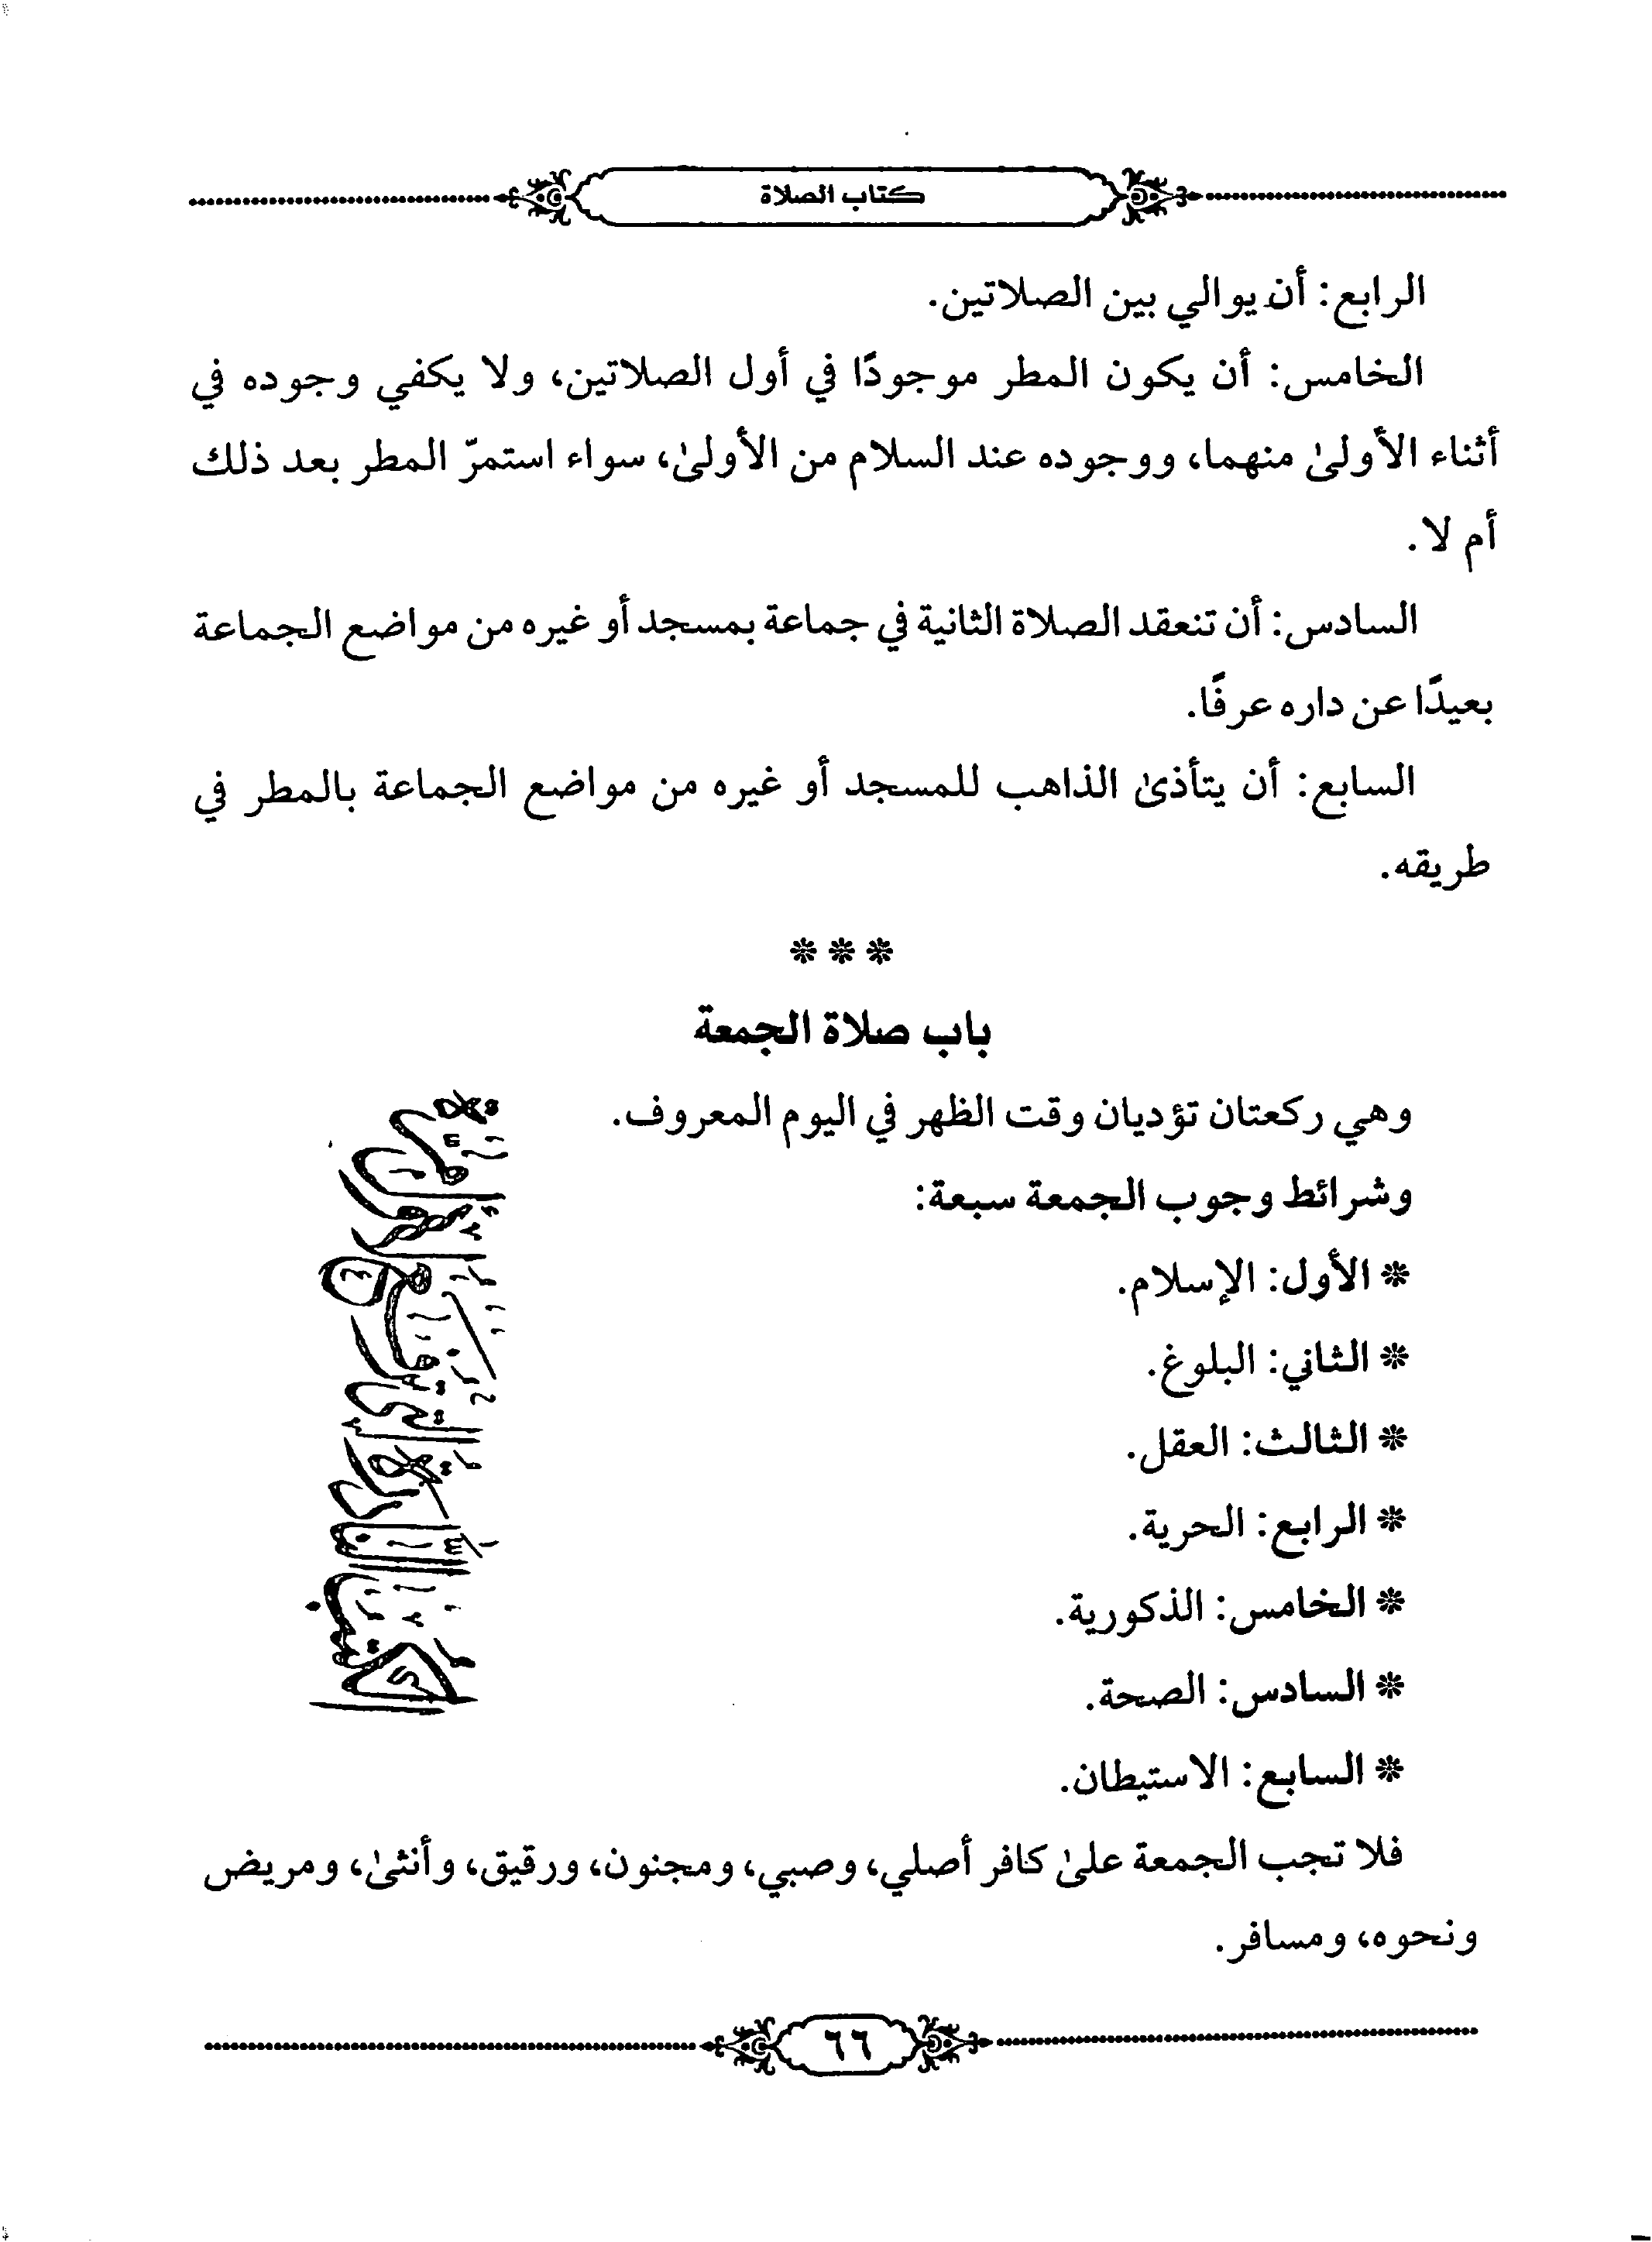 كتاب الصلاة
الرابع: أن يوالي بين الصلاتين.
الخامس: أن يكون المطر موجودًا في أول الصلاتين، ولا يكفي وجوده في
أثناء الأولىٰ منهما، ووجوده عند السلام من الأولىٰ، سواء استمرّ المطر بعد ذلك
أم لا.
السادس: أن تنعقد الصلاة الثانية في جماعة بمسجد أو غيره من مواضع الجماعة
بعيدًا عن داره عرفًا.
السابع: أن يتأذىٰ الذاهب للمسجد أو غيره من مواضع الجماعة بالمطر في
طريقه.
❊ ❊ ❊
باب صلاة الجمعة
وهي ركعتان تؤديان وقت الظهر في اليوم المعروف.
وشرائط وجوب الجمعة سبعة:
❊ الأول: الإسلام.
❊ الثاني: البلوغ.
❊ الثالث: العقل.
❊ الرابع: الحرية.
❊ الخامس: الذكورية.
❊ السادس: الصحة.
❊ السابع: الاستيطان.
فلا تجب الجمعة علىٰ كافر أصلي، وصبي، ومجنون، ورقيق، وأنثىٰ، ومريض
ونحوه، ومسافر.
٦٦